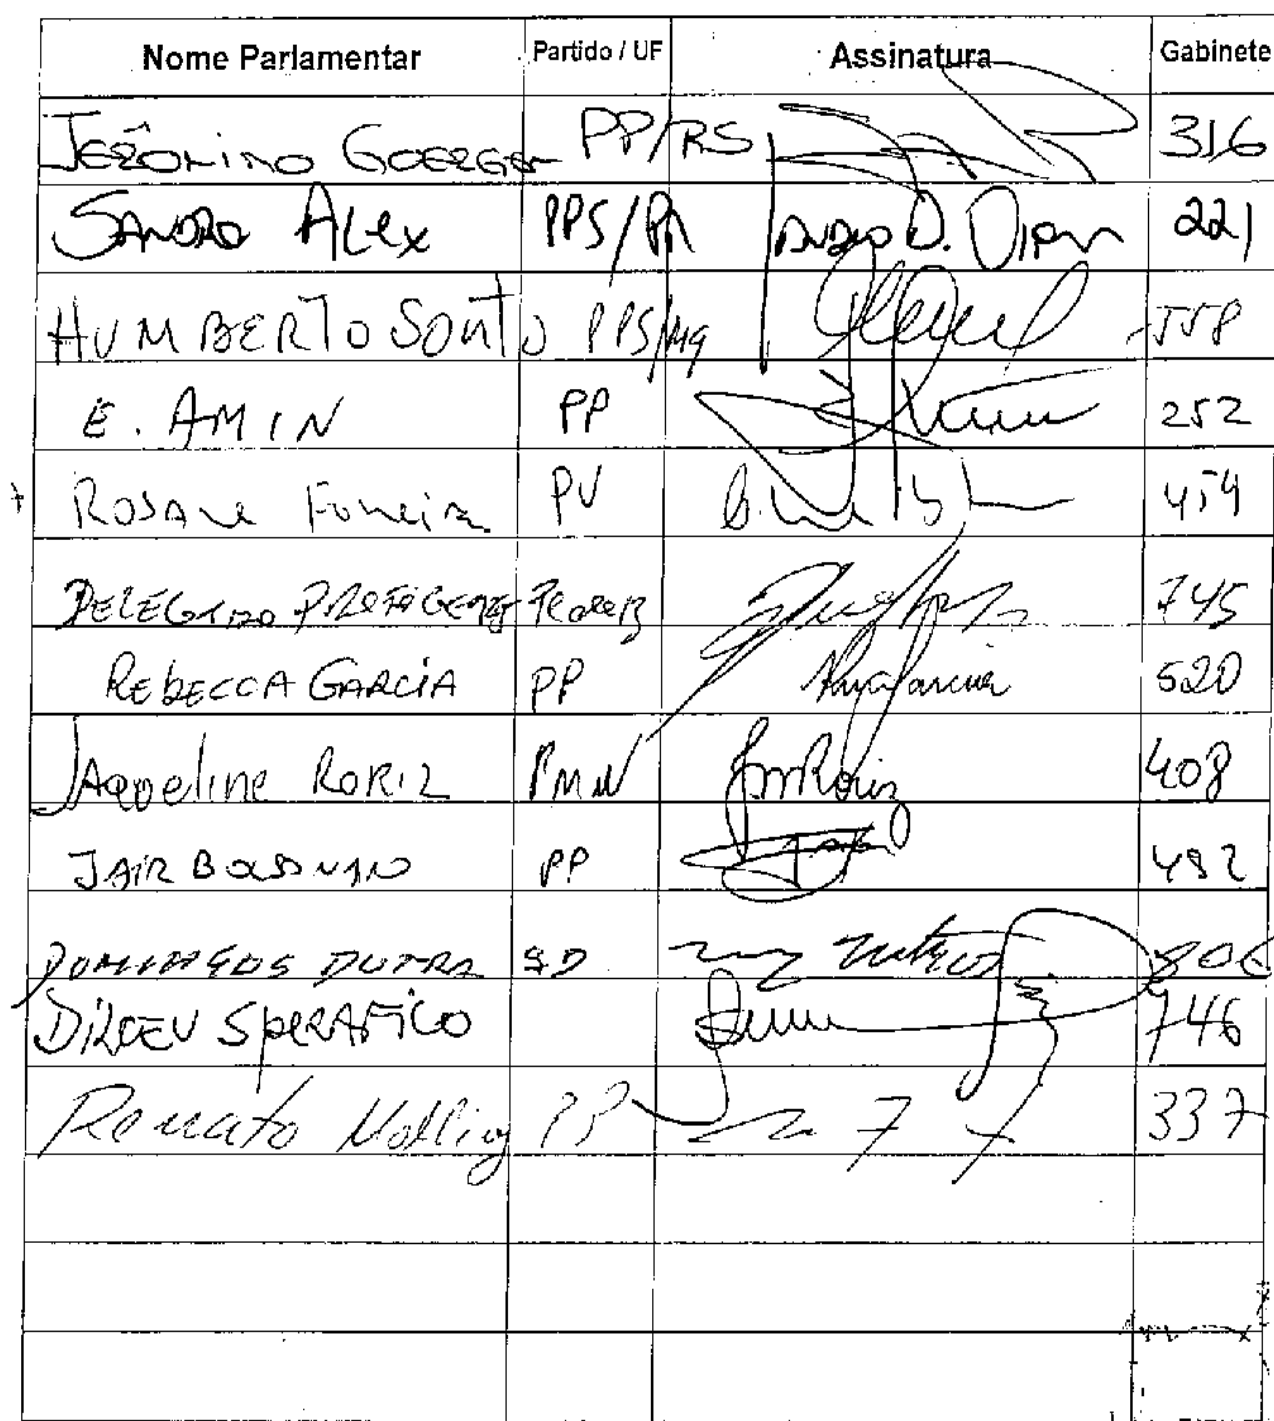 Nome Parlamentar Partido / UF Assinatura Gabinete
JERÔNIMO GOERGEN PP/RS 316
SANDRO ALEX PPS/PR 221
HUMBERTO SOUTO PPS/MG 558
E. AMIN PP 252
ROSANE Ferreira PV 454
DELEGADO PROTÓGENES PCdoB 745
REBECCA GARCIA PP 520
JAQUELINE RORIZ PMN 408
JAIR BOLSONARO PP 482
DOMINGOS DUTRA SD 806
DILCEU SPERAFICO 746
Renato Molling PP 337